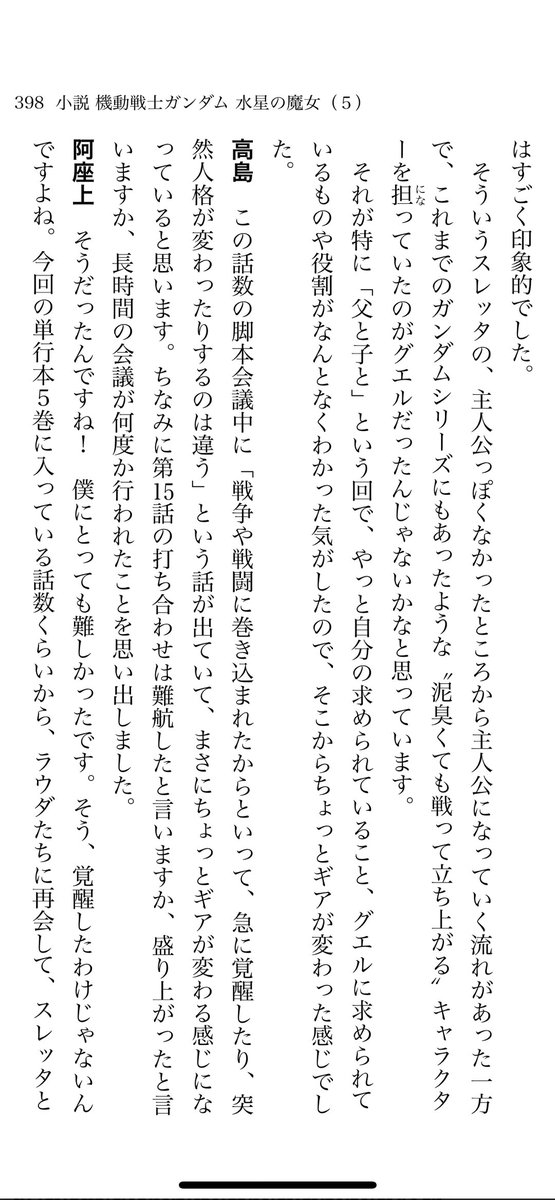 398 小説 機動戦士ガンダム 水星の魔女（5）
はすごく印象的でした。
　そういうスレッタの、主人公っぽくなかったところから主人公になっていく流れがあった一方
で、これまでのガンダムシリーズにもあったような〝泥臭くても戦って立ち上がる〟キャラクタ
ーを担になっていたのがグエルだったんじゃないかなと思っています。
　それが特に「父と子と」という回で、やっと自分の求められていること、グエルに求められて
いるものや役割がなんとなくわかった気がしたので、そこからちょっとギアが変わった感じでし
た。
高島　この話数の脚本会議中に「戦争や戦闘に巻き込まれたからといって、急に覚醒したり、突
然人格が変わったりするのは違う」という話が出ていて、まさにちょっとギアが変わる感じにな
っていると思います。ちなみに第15話の打ち合わせは難航したと言いますか、盛り上がったと言
いますか、長時間の会議が何度か行われたことを思い出しました。
阿座上　そうだったんですね！　僕にとっても難しかったです。そう、覚醒したわけじゃないん
ですよね。今回の単行本５巻に入っている話数くらいから、ラウダたちに再会して、スレッタと